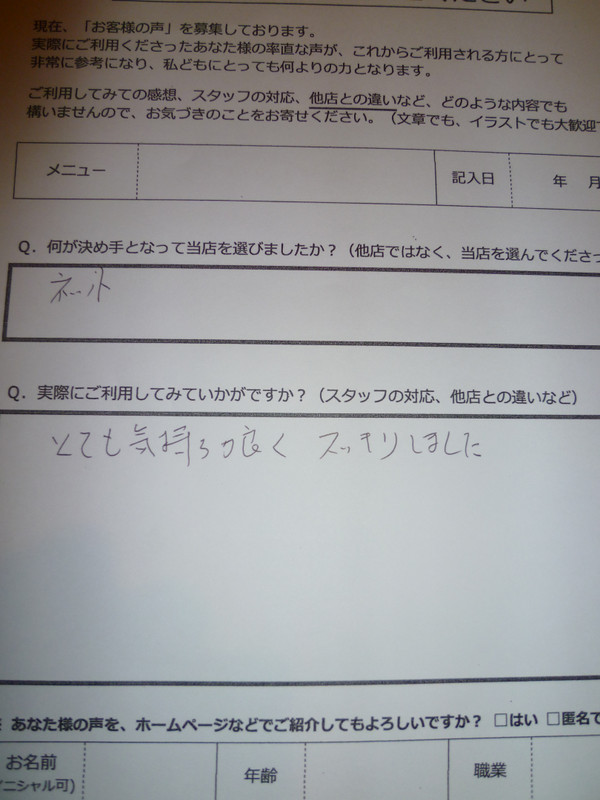 ください
現在、「お客様の声」を募集しております。
実際にご利用くださったあなた様の率直な声が、これからご利用される方にとって
非常に参考になり、私どもにとっても何よりの力となります。
ご利用してみての感想、スタッフの対応、他店との違いなど、どのような内容でも
構いませんので、お気づきのことをお寄せください。（文章でも、イラストでも大歓迎で
メニュー 記入日 年 月
Q．何が決め手となって当店を選びましたか？（他店ではなく、当店を選んでくださっ
ネット
Q．実際にご利用してみていかがですか？（スタッフの対応、他店との違いなど）
とても気持ちが良く スッキリしました
あなた様の声を、ホームページなどでご紹介してもよろしいですか？ □はい □匿名で
お名前 年齢 職業
ニシャル可)